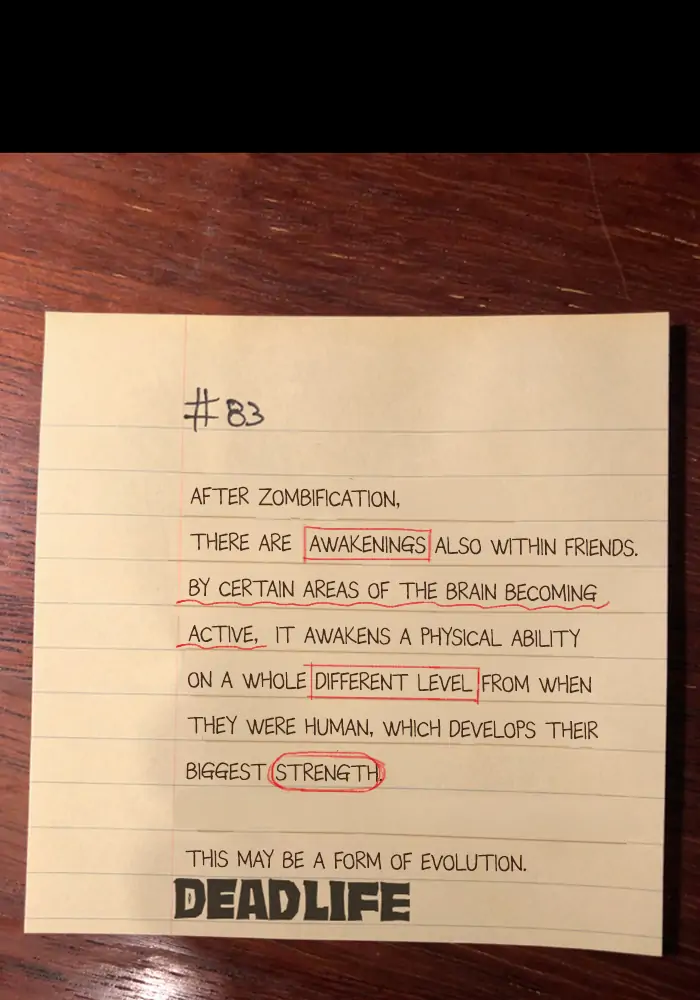 #83
AFTER ZOMBIFICATION,
THERE ARE AWAKENINGS ALSO WITHIN FRIENDS.
BY CERTAIN AREAS OF THE BRAIN BECOMING
ACTIVE, IT AWAKENS A PHYSICAL ABILITY
ON A WHOLE DIFFERENT LEVEL FROM WHEN
THEY WERE HUMAN, WHICH DEVELOPS THEIR
BIGGEST STRENGTH.
THIS MAY BE A FORM OF EVOLUTION.
DEADLIFE